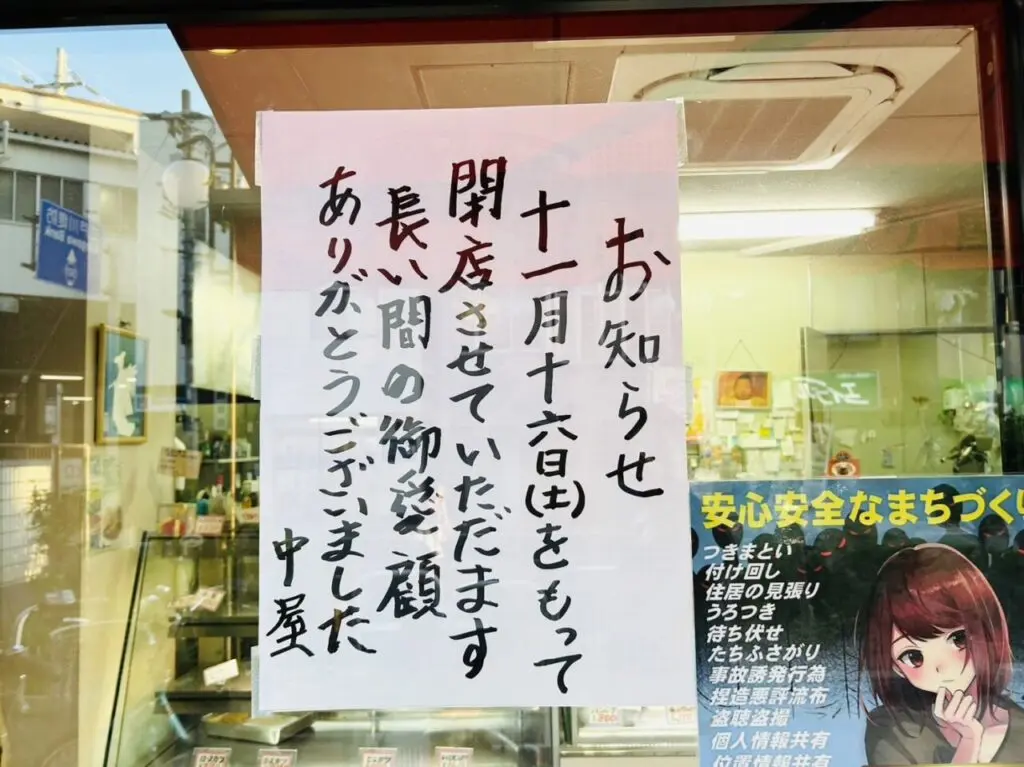 お知らせ
十一月十六日(土)をもって
閉店させていただます
長い間の御愛顧
ありがとうございました
中屋
安心安全なまちづくり
つきまとい
付け回し
住居の見張り
うろつき
待ち伏せ
たちふさがり
事故誘発行為
捏造悪評流布
盗聴盗撮
個人情報共有
位置情報共有